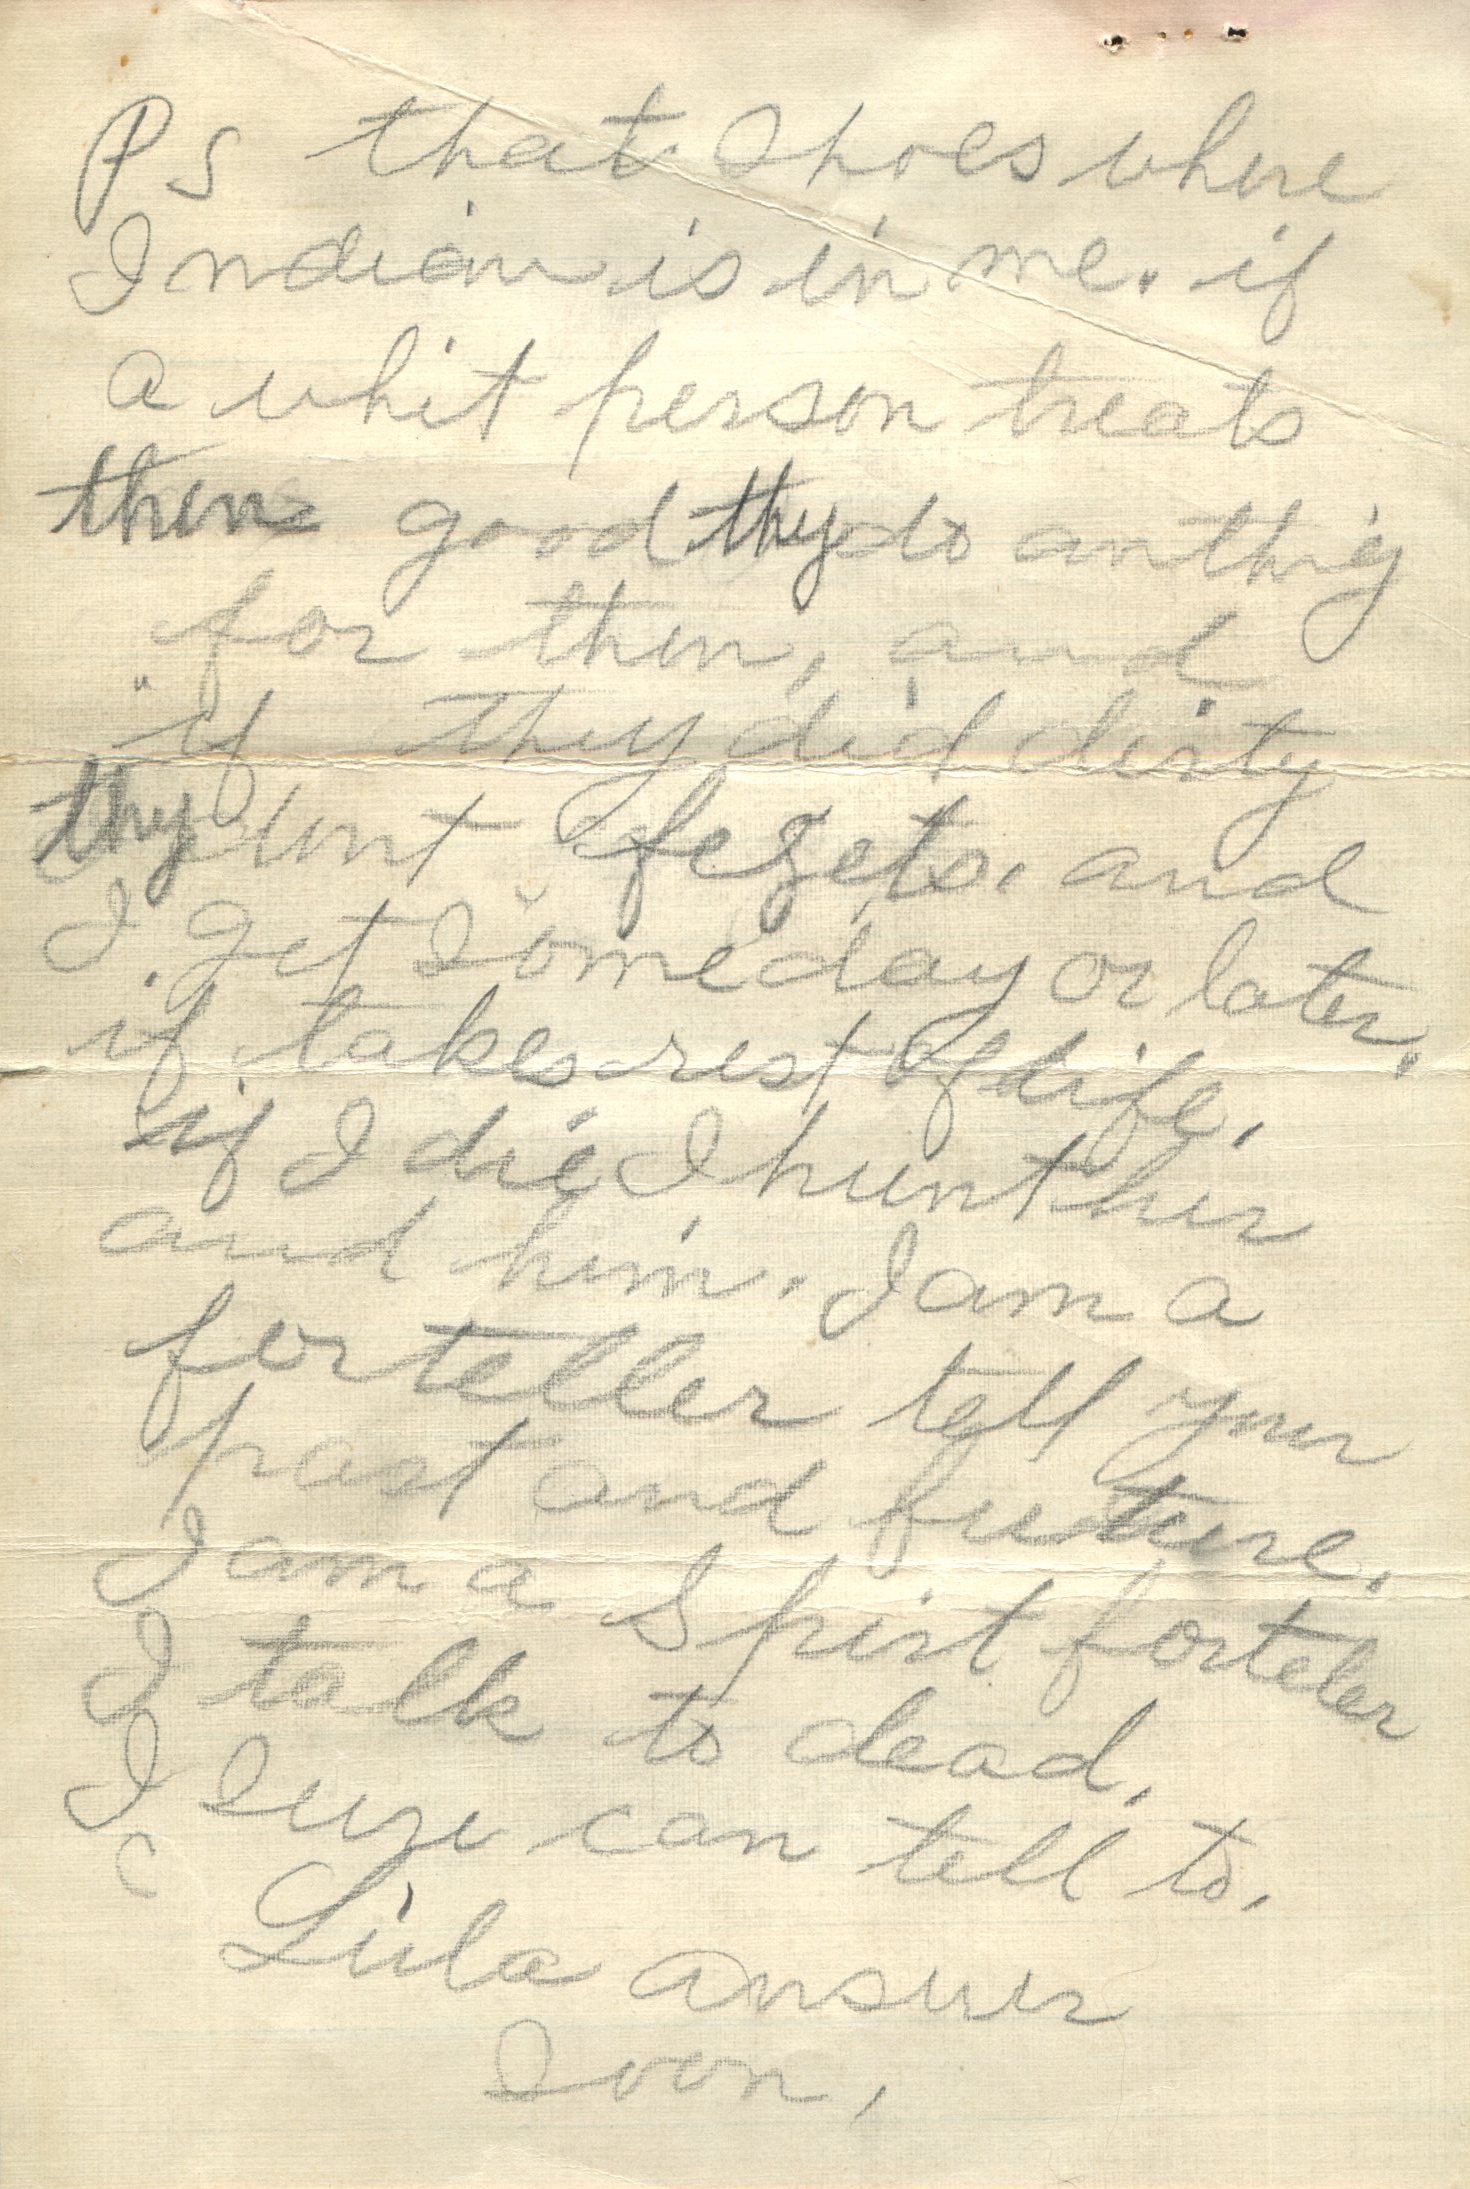 PS that Shoes where
Indian is in me. if
a whit person treats
then good thy do anthig
for then, and
if they did dirty
thy wnt fegets. and
I get Some day or later.
if takes rest of life.
if I die I hunt her
and him. I am a
forteller tell your
past and fueture.
I am a Spirt forteler
I talk to dead.
I Sure can tell to.
Lula answer
Soon,